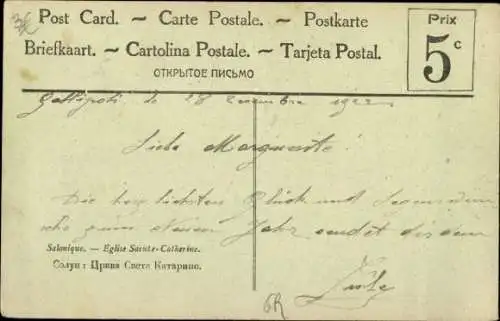 Post Card. ~ Carte Postale. ~ Postkarte
Briefkaart. ~ Cartolina Postale. ~ Tarjeta Postal.
ОТКРЫТОЕ ПИСЬМО
Prix
5 c
Gallipoli le 28 1922
Liebe Marguerite!
Die herzlichsten Glück und
zum Neuen Jahr sendet dir dein
Salonique. — Eglise Sainte-Catherine.
Солун : Црква Света Катарина.